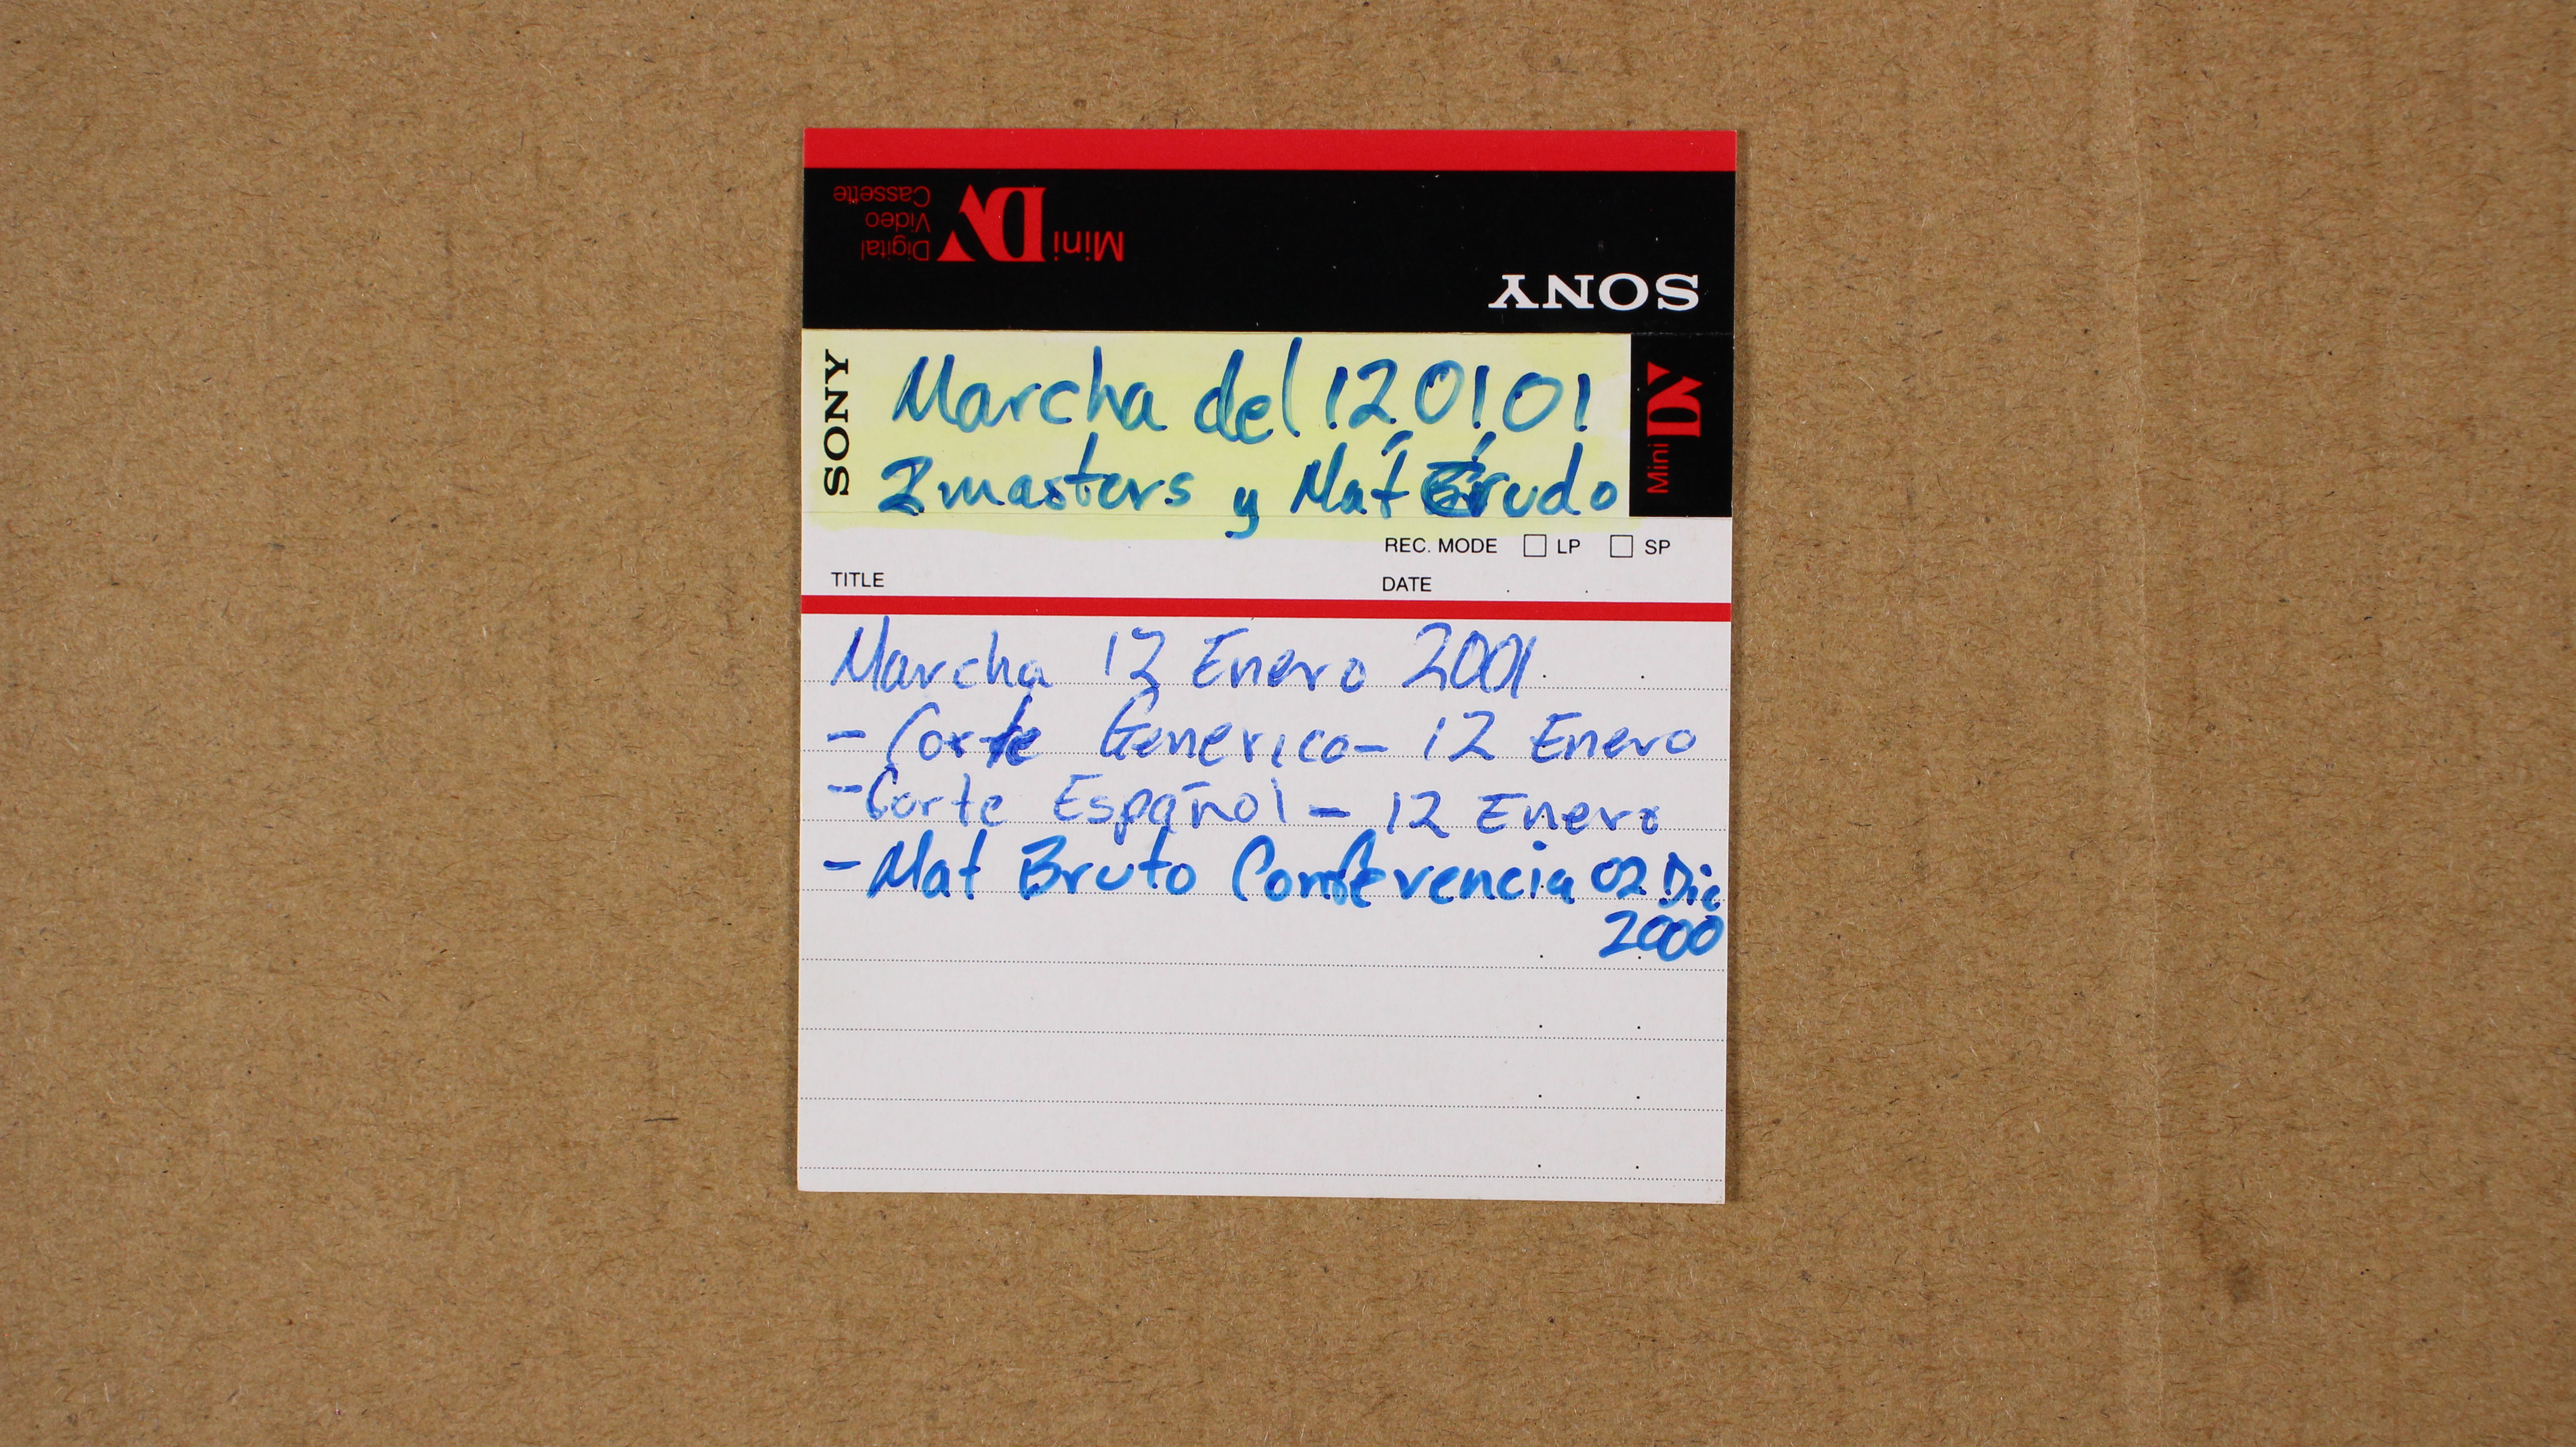 Mini DV Digital Video Cassette
SONY
SONY
Marcha del 120101
2 masters y Mat Crudo
Mini DV
REC. MODE □ LP □ SP
TITLE
DATE
Marcha 12 Enero 2001
- Corte Generico - 12 Enero
- Corte Español - 12 Enero
- Mat Bruto 02 Dic
2000